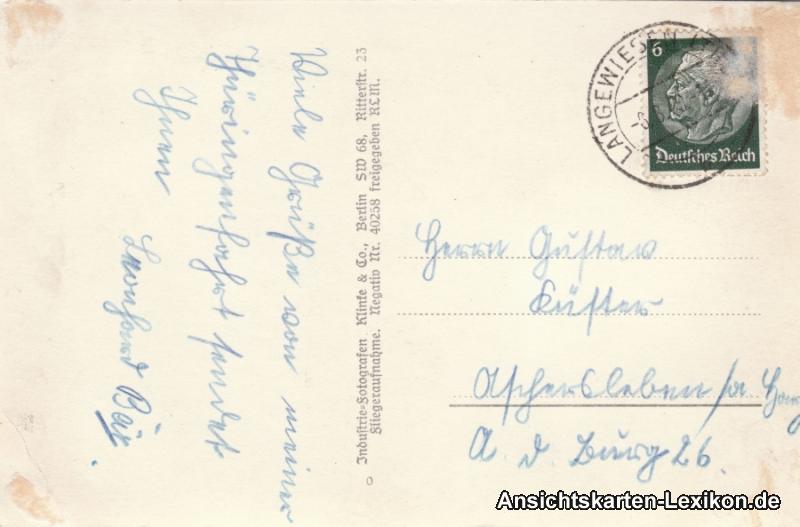 Viele Grüße von meiner
Thüringenfahrt sendet
Ihnen
Leonhard Bär.
Industrie-Fotografen Klinke & Co., Berlin SW 68, Ritterstr. 23
Fliegeraufnahme. Negativ Nr. 40258 freigegeben RLM.
LANGEWIESEN
6
Deutsches Reich
Herrn Gustav
Küster
Aschersleben/a Harz
A. d. Burg 26.
Ansichtskarten-Lexikon.de